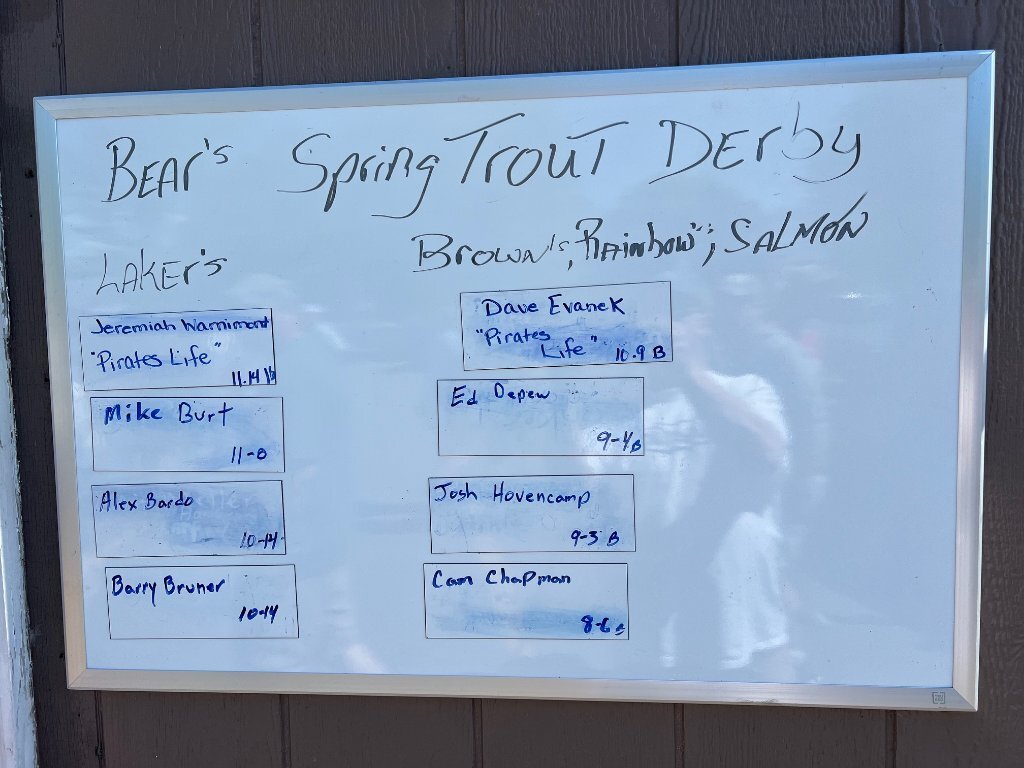 BEAr's Spring TrouT DErby
LAKEr's
Jeremiah Warnimont
"Pirates Life"
11.14 lb
Mike Burt
11-8
Alex Bardo
10-14
Barry Bruner
10-14
Brown's, Rainbow's, SALMON
Dave Evanek
"Pirates
Life" 10.9 B
Ed Depew
9-4 B
Josh Hovencamp
9-3 B
Cam Chapman
8-6